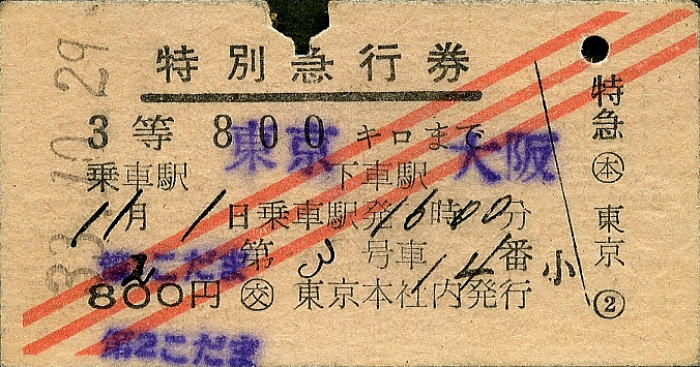 特別急行券
3等 800キロまで
東京 大阪
乗車駅 下車駅
11月1日乗車駅発16時00分
第2こだま 第3号車14番
800円 交 東京本社内発行
第2こだま
小
特急 本 東京 2
33.10.29